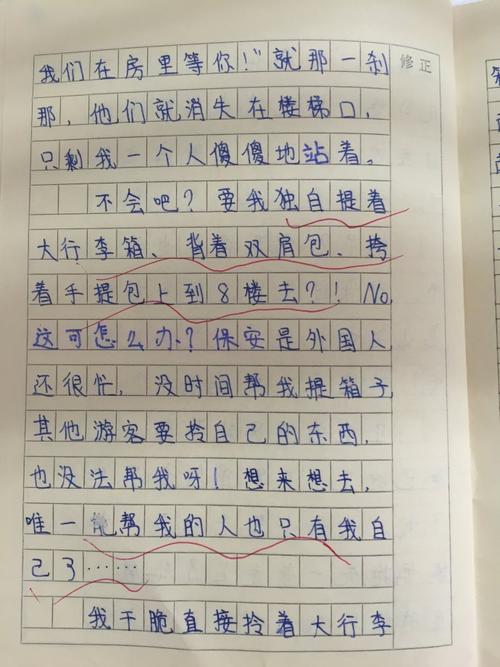 我们在房里等你！”就那一刹
修正
那，他们就消失在楼梯口，
只剩我一个人傻傻地站着。
不会吧？要我独自提着
大行李箱、背着双肩包、挎
着手提包上到8楼去？！No，
这可怎么办？保安是外国人
还很忙，没时间帮我提箱子
其他游客要拎自己的东西，
也没法帮我呀！想来想去，
唯一能帮我的人也只有我自
己了……
我干脆直接拎着大行李